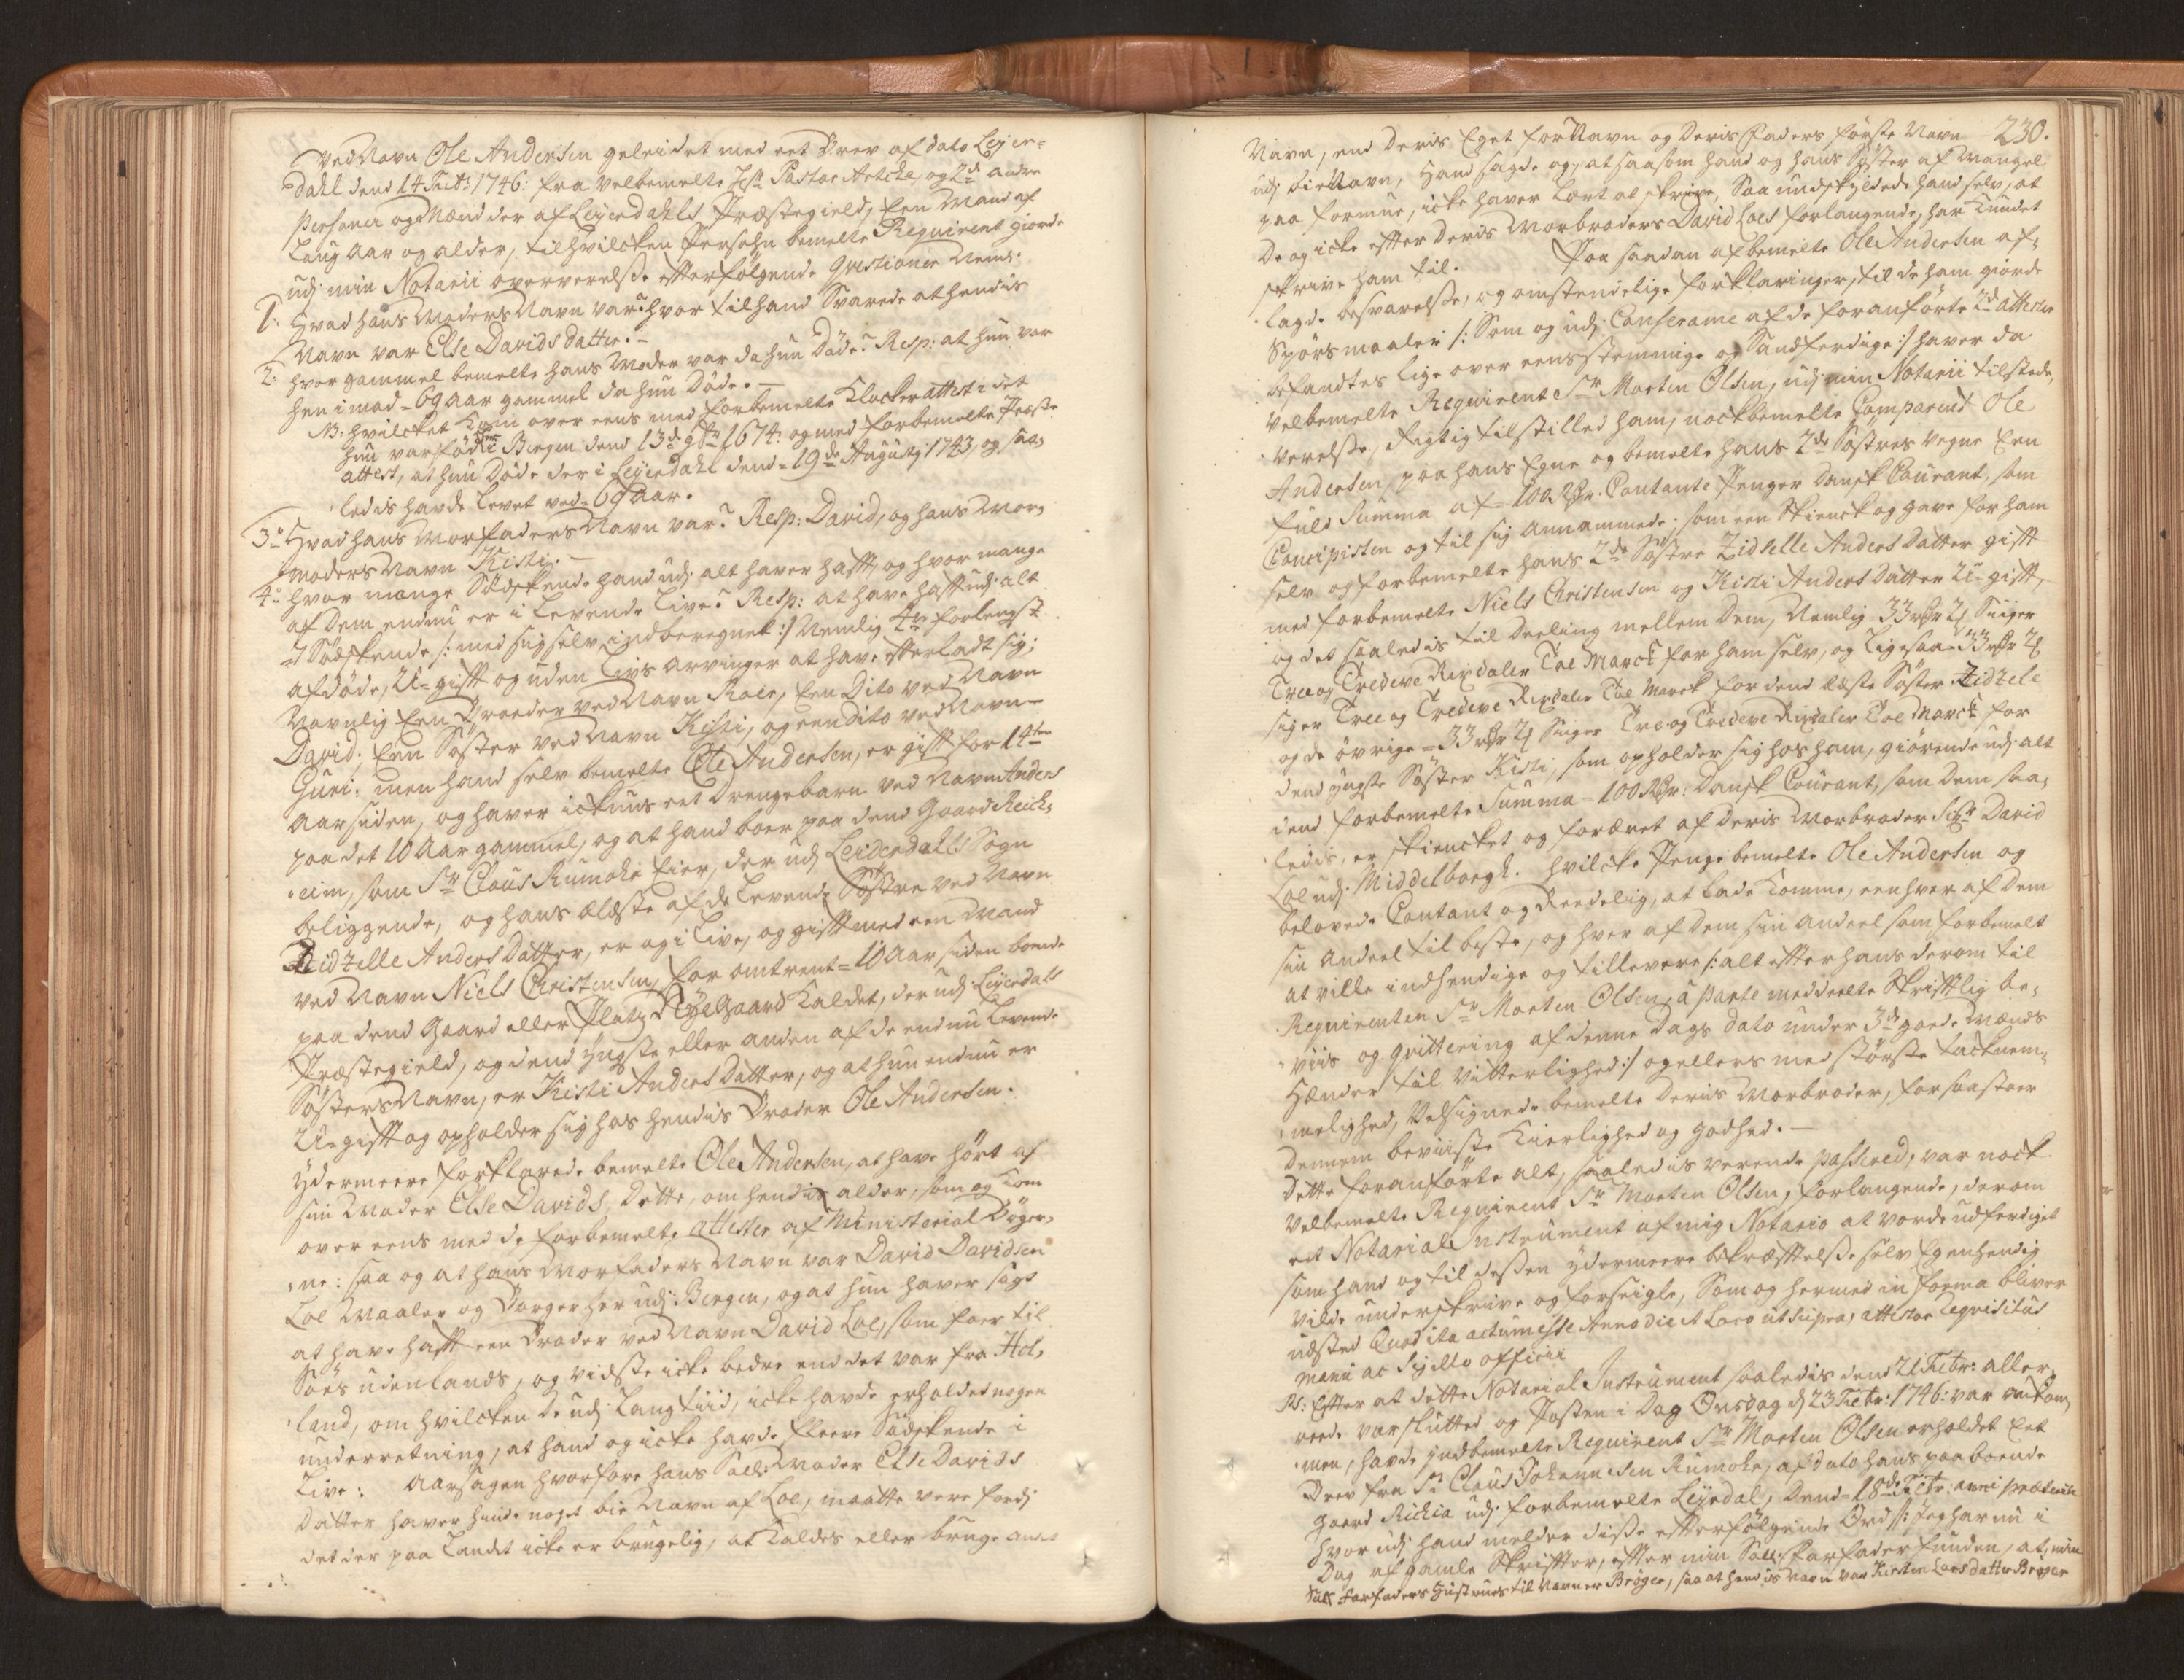 ved Navn Ole Andersen geleidet med eet Brev af dato Leÿer-
dahl dend 14 Febr: 1746: fra velbemelte Hr: Pastor Aetche, og 2de andre
Persohner og Mænd der af Leÿerdahls Præstegield, Een Mand af
Laug Aar og alder, til hvilcken Persohn bemelte Requirent giorde
udj min Notarii oververelsse efterfølgende Qvestioner Neml:
1: Hvad hans Moders Navn var? hvor til hand Svarede at hendis
Navn var Else Davids datter. -
2: hvor gammel bemelte hans Moder var da hun døde? Resp: at hun var
hen imod - 69 aar gammel da hun døde. -
NB: hvilcket kom over eens med forbemelte Klocker attest i det
hun var født i Bergen dend 13de 9br 1674: og med forbemelte Præste
attest, at hun døde der i Leÿerdahl dend - 19de Augustj 1743, og saa-
ledis havde levet ved - 69 aar.
3o Hvad hans Morfaders Navn var? Resp: David, og hans Mor-
moders Navn Kisti. -
4o hvor mange Sødskende hand udj alt haver hafft, og hvor mange
af dem endnu er i levende live? Resp: at have hafft udj alt
=7 Sødskende /: med sig selv indberegnet :/ Nemlig 4re forlengst
afdøde, U-gifft og uden Livs Arvinger at have efterladt sig;
Navnlig Een Broeder ved Navn Roer, Een Dito ved Navn
David; Een Søster ved Navn Kisti, og een dito ved Navn -
Guri: men hand selv bemelte Ole Andersen, er gifft for 14ten
Aar siden, og haver ickuns eet Drengebarn ved Navn Anders
paa det 10 Aar gammel, og at hand boer paa dend Gaard Reick-
eim, som Sr Claus Rumohr Eier, der udj Leÿerdahls Sogn
beliggende, og hans ældste af de levende Søstre ved Navn
Zidzelle Anders Datter, er og i live, og gifft med een Mand
ved Navn Niels Christensen, for omtrent = 10 Aar siden boende
paa dend Gaard eller Platz Kaldet, der udj Leÿerdals
Præstegield, og dend ÿngste eller anden af de endnu levende
Søsters Navn, er Kisti Anders Datter, og at hun endnu er
U-gifft og opholder sig hos hendis Broder Ole Andersen.
Ydermeere forklarede bemelte Ole Andersen, at have hørt af
sin Moder Else Davids Dotter, om hendis alder, som og kom
over eens med de forbemelte attester af Ministerial Bøger-
ne: saa og at hans Morfaders Navn var David Davidsen
Loe Maaler og Borger her udj Bergen, og at hun haver sagt
at have hafft een Broder ved Navn David Loe, som foer til
Søes udenlands, og vidste icke bedre end det var fra Hol-
land, om hvilcken de udj Lang tiid, icke havde erholded nogen
underretning, at hand og icke havde fleere Sødskende i
live: Aarsagen hvorfore hans Sall: Moder Else Davids
Datter haver havde noget bie Navn af Loe, maatte vere fordj
det der paa Landet icke er brugelig, at kaldes eller bruge andet
230.
Navn, end deris Eget for Navn og deris Faders første Navn
udj bieNavn, Hand sagde og, at saasom hand og hans Søster af Mangel
paa formue, icke haver Lært at skrive, Saa undskyldede hand selv, at
de og icke efter deris Morbroders David Loes forlangende, har kundet
skrive ham til. Paa saadan af bemelte Ole Andersen af-
lagde besvarelsse, og omstendelige forklaringer, til de ham giorde
Spørsmaaler /: Som og udj Conferance af de foranførte 2de attester
befandtes lige over eensstemmige og Sandferdige :/ haver da
velbemelte Requirent Sr Morten Olsen, udj min Notarii tilstede-
verelsse, Rigtig tilstilled ham, nockbemelte Comparent Ole
Andersen, paa hans Egne og bemelte hans 2de Søstres vegne Een
fuld Summa af = 100 Rdr. Contante Penger Dansk Courant, som
Concipisten og til sig annammede; som een Skienck og gave for ham
selv og forbemelte hans 2de Søstre Zidselle Anders Datter gifft
med forbemelte Niels Christensen og Kisti Anders datter U-gifft,
og det saaledis til deeling mellem dem, Nemlig 33 rdr 2 Siiger
Tree og Tredeve Rixdaler Toe Marck for ham selv, og Ligesaa = 33 rdr 2
siger Tree og Tredeve Rixdaler Toe Marck for dend ældste Søster Zidzele
og de øvrige = 33 rdr 2 Siiger Tre og Tredeve Rixdaler Toe Marck for
dend ÿngste Søster Kisti, som opholder sig hos ham, giørende udj alt
dend forbemelte Summa = 100 Rdr: Dansk Courant, som dem saa-
ledis, er skiencket og foræret af deris Morbroder Sigr David
Loe udj Middelborgh. hvilcke Penge bemelte Ole Andersen og
belovede Contant og Reedelig, at lade komme, een hver af dem
sin andeel til beste, og hver af dem sin andeel som forbemelt
at ville indhendige og tillevere /: alt efter hans derom til
Requirenten Sr Morten Olsen, à Parte meddeelte Skrifftlig be-
viis og qvittering af denne Dags dato under 3de goede Mænds
Hænder til Vitterlighed :/ og ellers med største tacknem-
melighed, Velsignede bemelte deris Morbroder, for saa stoer
dennem beviiste Kierlighed og godhed. -
Dette foranførte alt, saaledis verende passered, var nock
velbemelte Requirent Sr Morten Olsen, forlangende, derom
eet Notarial Instrument af mig Notario at vorde udferdiget
som hand og til dessen ÿdermeere bekræfftelsse selv Egenhendig
vilde underskrive og forseigle, Som og hermed in forma bliver
udsted Quod ita actum esse Anno die et Loco ut supra, attestor reqvisitus
manu ac Sigillo officii
NB: Efter at dette Notarial Instrument saaledis dend 21 Febr: aller-
reede var sluttet og Posten i Dag Onsdag d 23 Febr: 1746: var ankom-
men, havde indbemelte Requirent Sr Morten Olsen erholdet Eet
Brev fra Sr Claus Johannesen Rumohr, af dato hans paaboende
Gaard Rickia udj forbemelte Leÿrdal, Dend = 18de Febr: anni præsentis
hvor udj hand melder disse efterfølgende Ord /: Jeg har nu i
Dag af gamle Skriffter, efter min Sall: farfader funden, at min
Sall: Farfaders Hustrues til Navn er Brøger, saa at hendis Navn var Kirsten Larsdatter Brøger